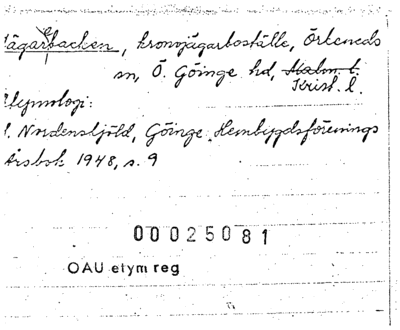 Jägarbacken, kronojägarboställe, Örkeneds
sn, Ö. Göinge hd, Malm. l.
Krist. l.
Etymologi:
Nordenskjöld, Göinge Hembygdsförenings
Årsbok 1948, s. 9
00025081
OAU etym reg